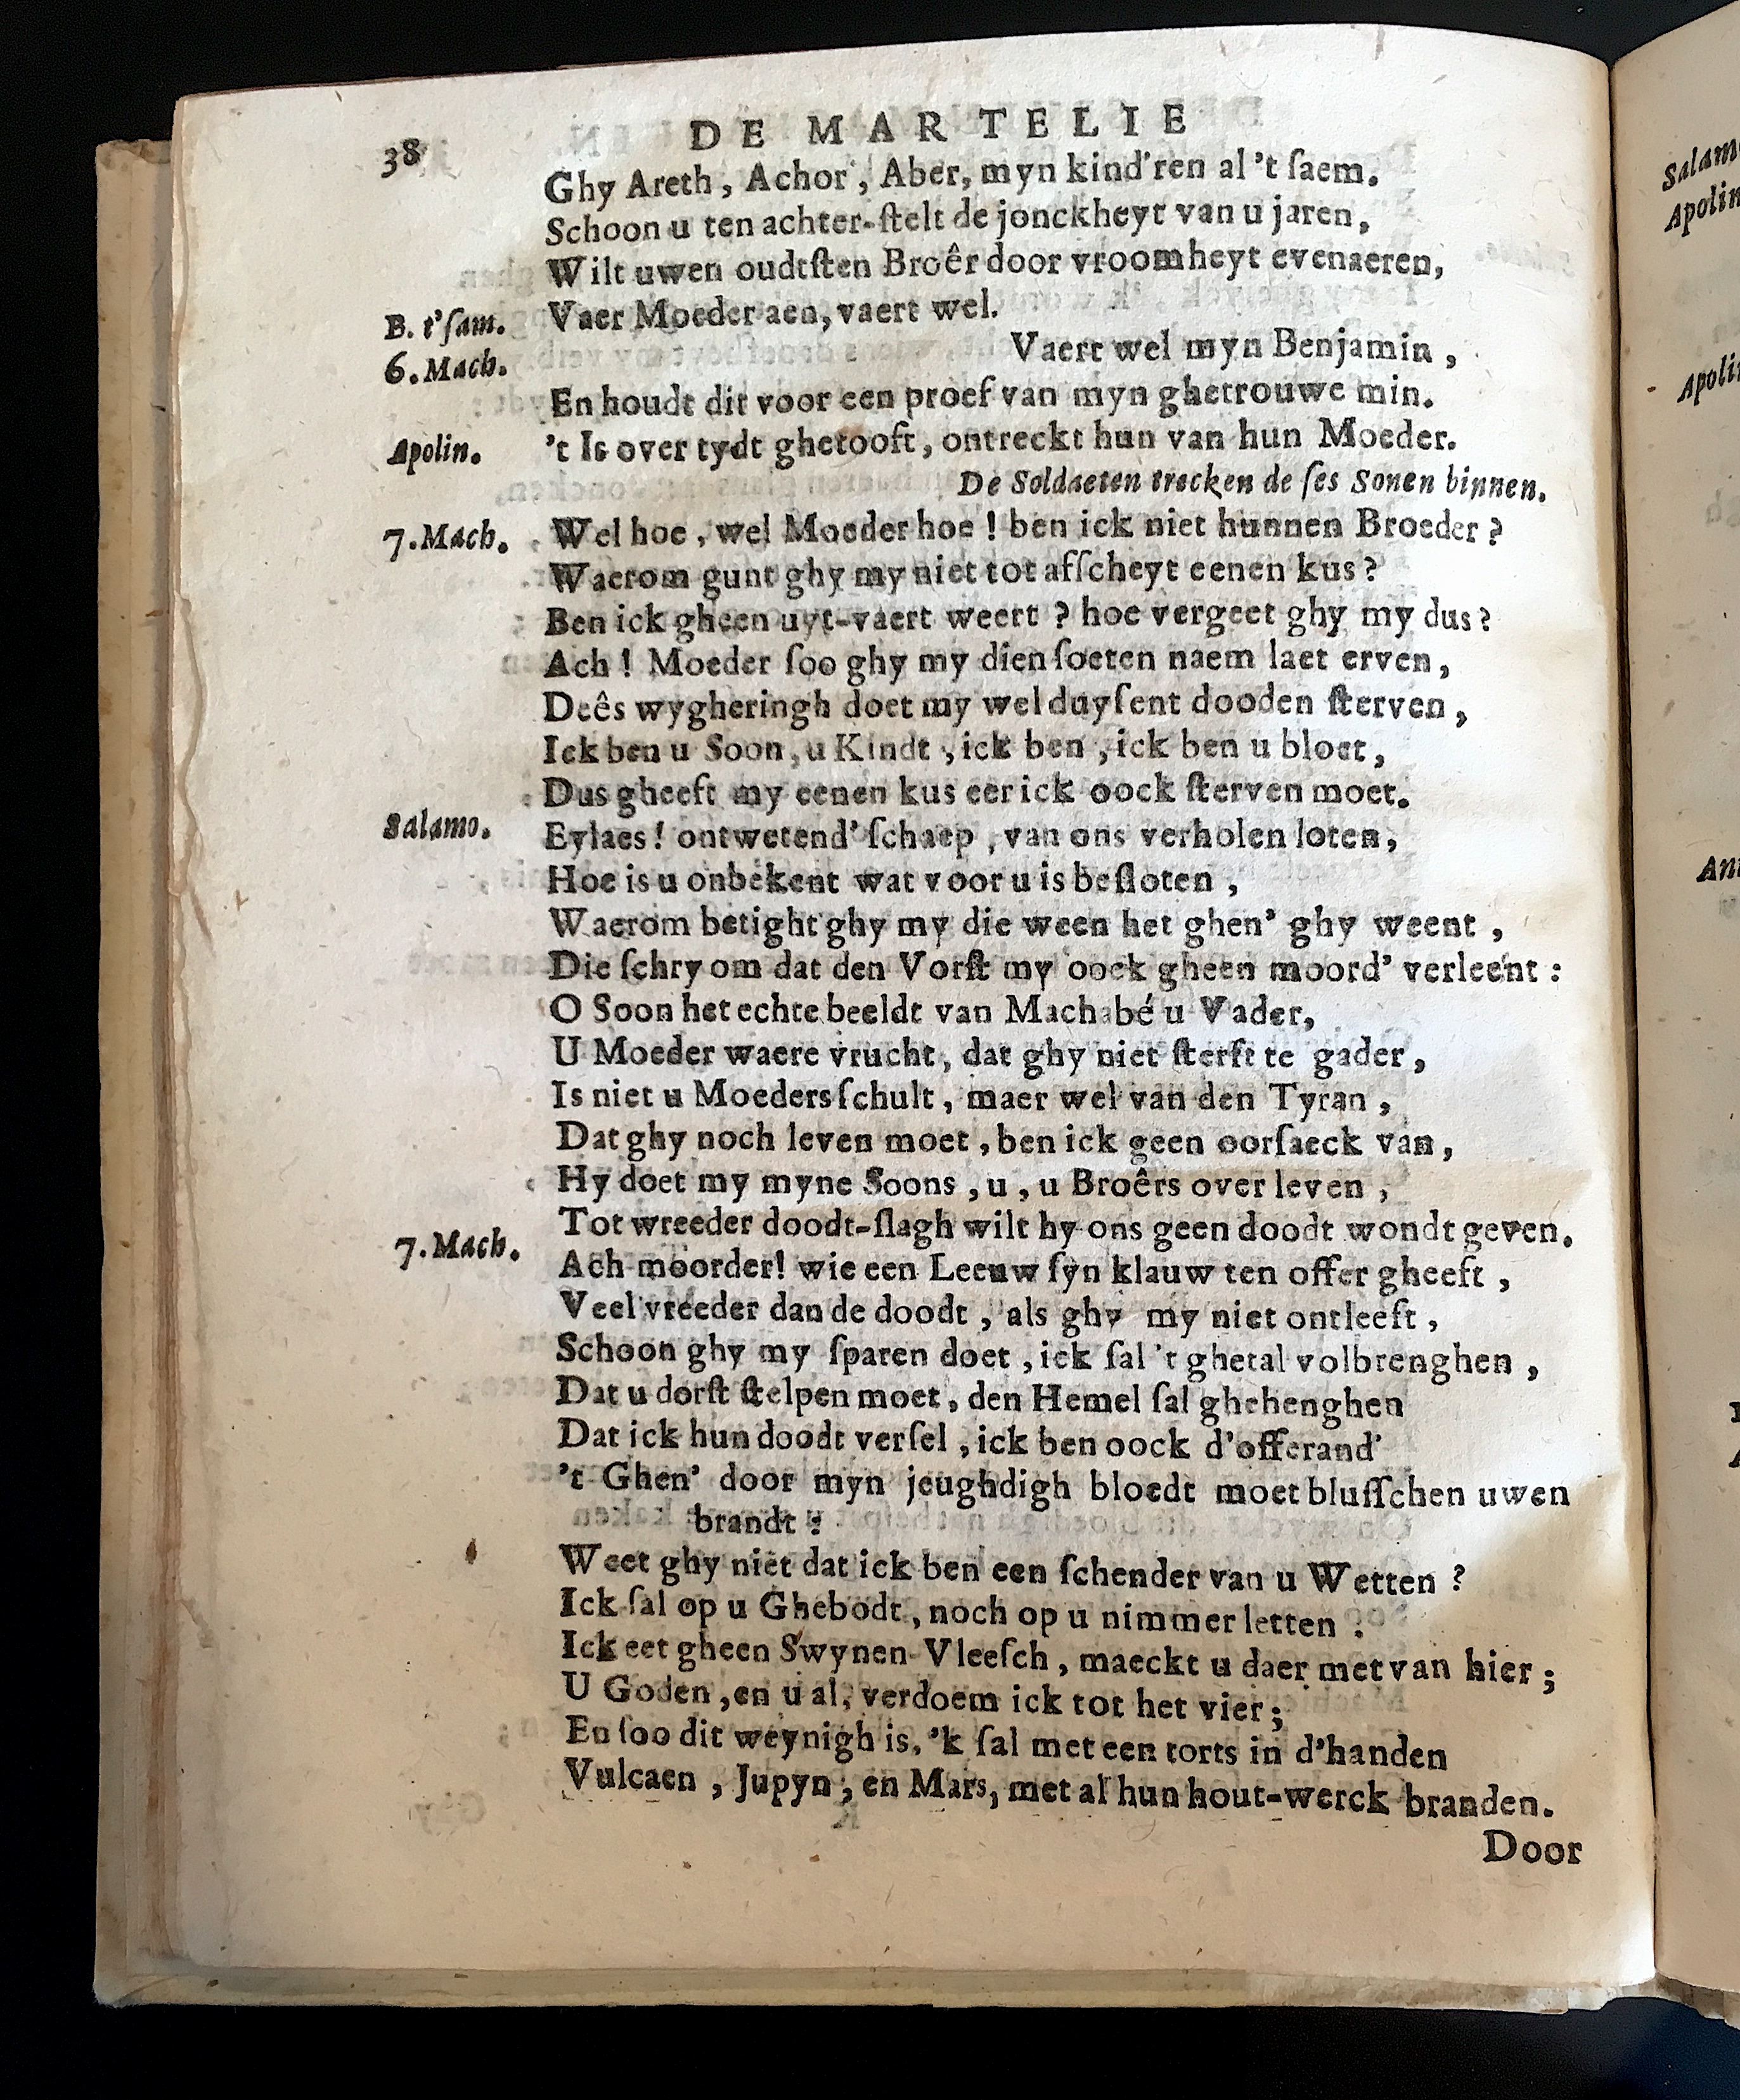 38 DE MARTELIE
Ghy Areth, Achor, Aber, myn kind'ren al 't ſaem.
Schoon u ten achter-ſtelt de jonckheyt van u jaren,
Wilt uwen oudtſten Broêr door vroomheyt evenaeren,
Vaer Moeder aen, vaert wel.
B. t'ſam. Vaert wel myn Benjamin,
6. Mach. En houdt dit voor een proef van myn ghetrouwe min.
Apolin. 't Is over tydt ghetooft, ontreckt hun van hun Moeder.
De Soldaeten trecken de ſes Sonen binnen.
7. Mach. Wel hoe, wel Moeder hoe! ben ick niet hunnen Broeder?
Waerom gunt ghy my niet tot afſcheyt eenen kus?
Ben ick gheen uyt-vaert weert? hoe vergeet ghy my dus?
Ach! Moeder ſoo ghy my dien ſoeten naem laet erven,
Deês wygheringh doet my wel duyſent dooden ſterven,
Ick ben u Soon, u Kindt, ick ben, ick ben u bloet,
Dus gheeft my eenen kus eer ick oock ſterven moet.
Salamo. Eylaes! ontwetend' ſchaep, van ons verholen loten,
Hoe is u onbekent wat voor u is beſloten,
Waerom betight ghy my die ween het ghen' ghy weent,
Die ſchry om dat den Vorſt my oock gheen moord' verleent:
O Soon het echte beeldt van Machabé u Vader,
U Moeder waere vrucht, dat ghy niet ſterft te gader,
Is niet u Moeders ſchult, maer wel van den Tyran,
Dat ghy noch leven moet, ben ick geen oorſaeck van,
Hy doet my myne Soons, u, u Broêrs over leven,
Tot wreeder doodt-ſlagh wilt hy ons geen doodt wondt geven.
7. Mach. Ach moorder! wie een Leeuw ſyn klauw ten offer gheeft,
Veel vreeder dan de doodt, als ghy my niet ontleeft,
Schoon ghy my ſparen doet, ick ſal 't ghetal volbrenghen,
Dat u dorſt ſtelpen moet, den Hemel ſal ghehenghen
Dat ick hun doodt verſel, ick ben oock d'offerand'
't Ghen' door myn jeughdigh bloedt moet bluſſchen uwen
brandt:
Weet ghy niet dat ick ben een ſchender van u Wetten?
Ick ſal op u Ghebodt, noch op u nimmer letten:
Ick eet gheen Swynen Vleeſch, maeckt u daer met van hier;
U Goden, en u al, verdoem ick tot het vier;
En ſoo dit weynigh is, 'k ſal met een torts in d'handen
Vulcaen, Jupyn, en Mars, met al hun hout-werck branden.
Door
Salam
Apolin
Apolin